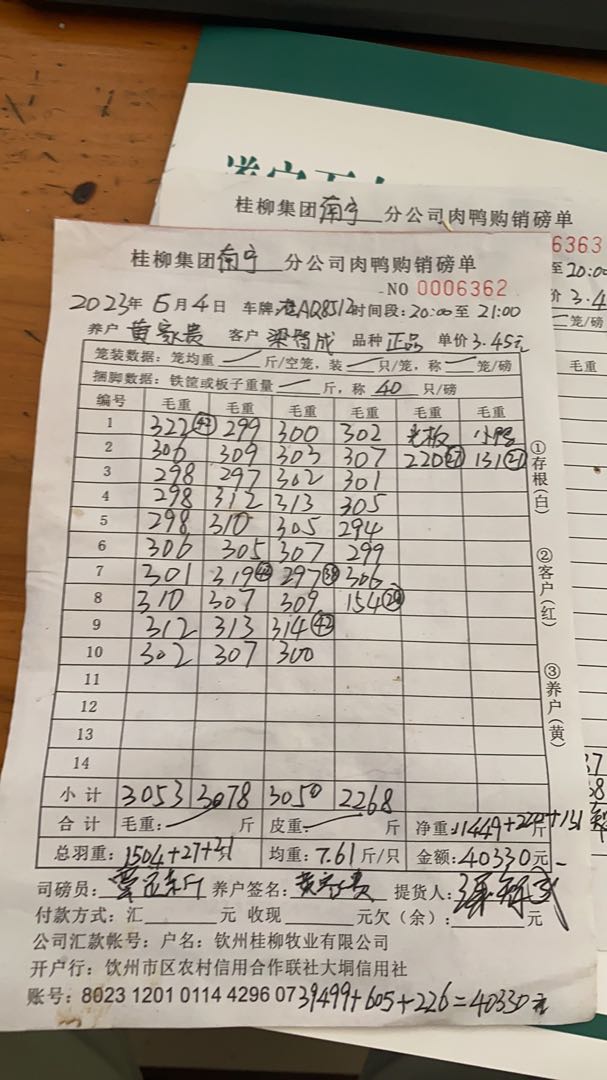 桂柳集团南宁 分公司肉鸭购销磅单
6363
桂柳集团南宁 分公司肉鸭购销磅单
NO 0006362
2023年6月4日 车牌 AQ8512 时间段:20:00至21:00
养户 黄家贵 客户 梁 成 品种 正品 单价 3.45元
笼装数据:笼均重 斤/空笼,装 只/笼,称 笼/磅
捆脚数据:铁筐或板子重量 斤,称 40 只/磅
编号 毛重 毛重 毛重 毛重 毛重 毛重
1 323 42 299 300 302 光板 小鸭
2 306 309 303 307 220 27 131 21
3 298 297 302 301
4 298 312 313 305
5 298 310 305 294
6 306 305 307 299
7 301 319 42 297 38 306
8 310 307 309 154 20
9 312 313 314 42
10 302 307 300
11
12
13
14
小计 3053 3078 3050 2268
合计 毛重: 斤 皮重: 斤 净重:11449+220+131斤
总羽重:1504+27+21 均重:7.61斤/只 金额:40330元
司磅员: 养户签名:黄家贵 提货人:
付款方式:汇 元 收现 元欠(余): 元
公司汇款帐号:户名:钦州桂柳牧业有限公司
开户行:饮州市区农村信用合作联社大垌信用社
账号:8023 1201 0114 4296 07 39499+605+226=40330元
①存根(白)
②客户(红)
③养户(黄)
至20:00
价 3.4
笼/磅
毛重